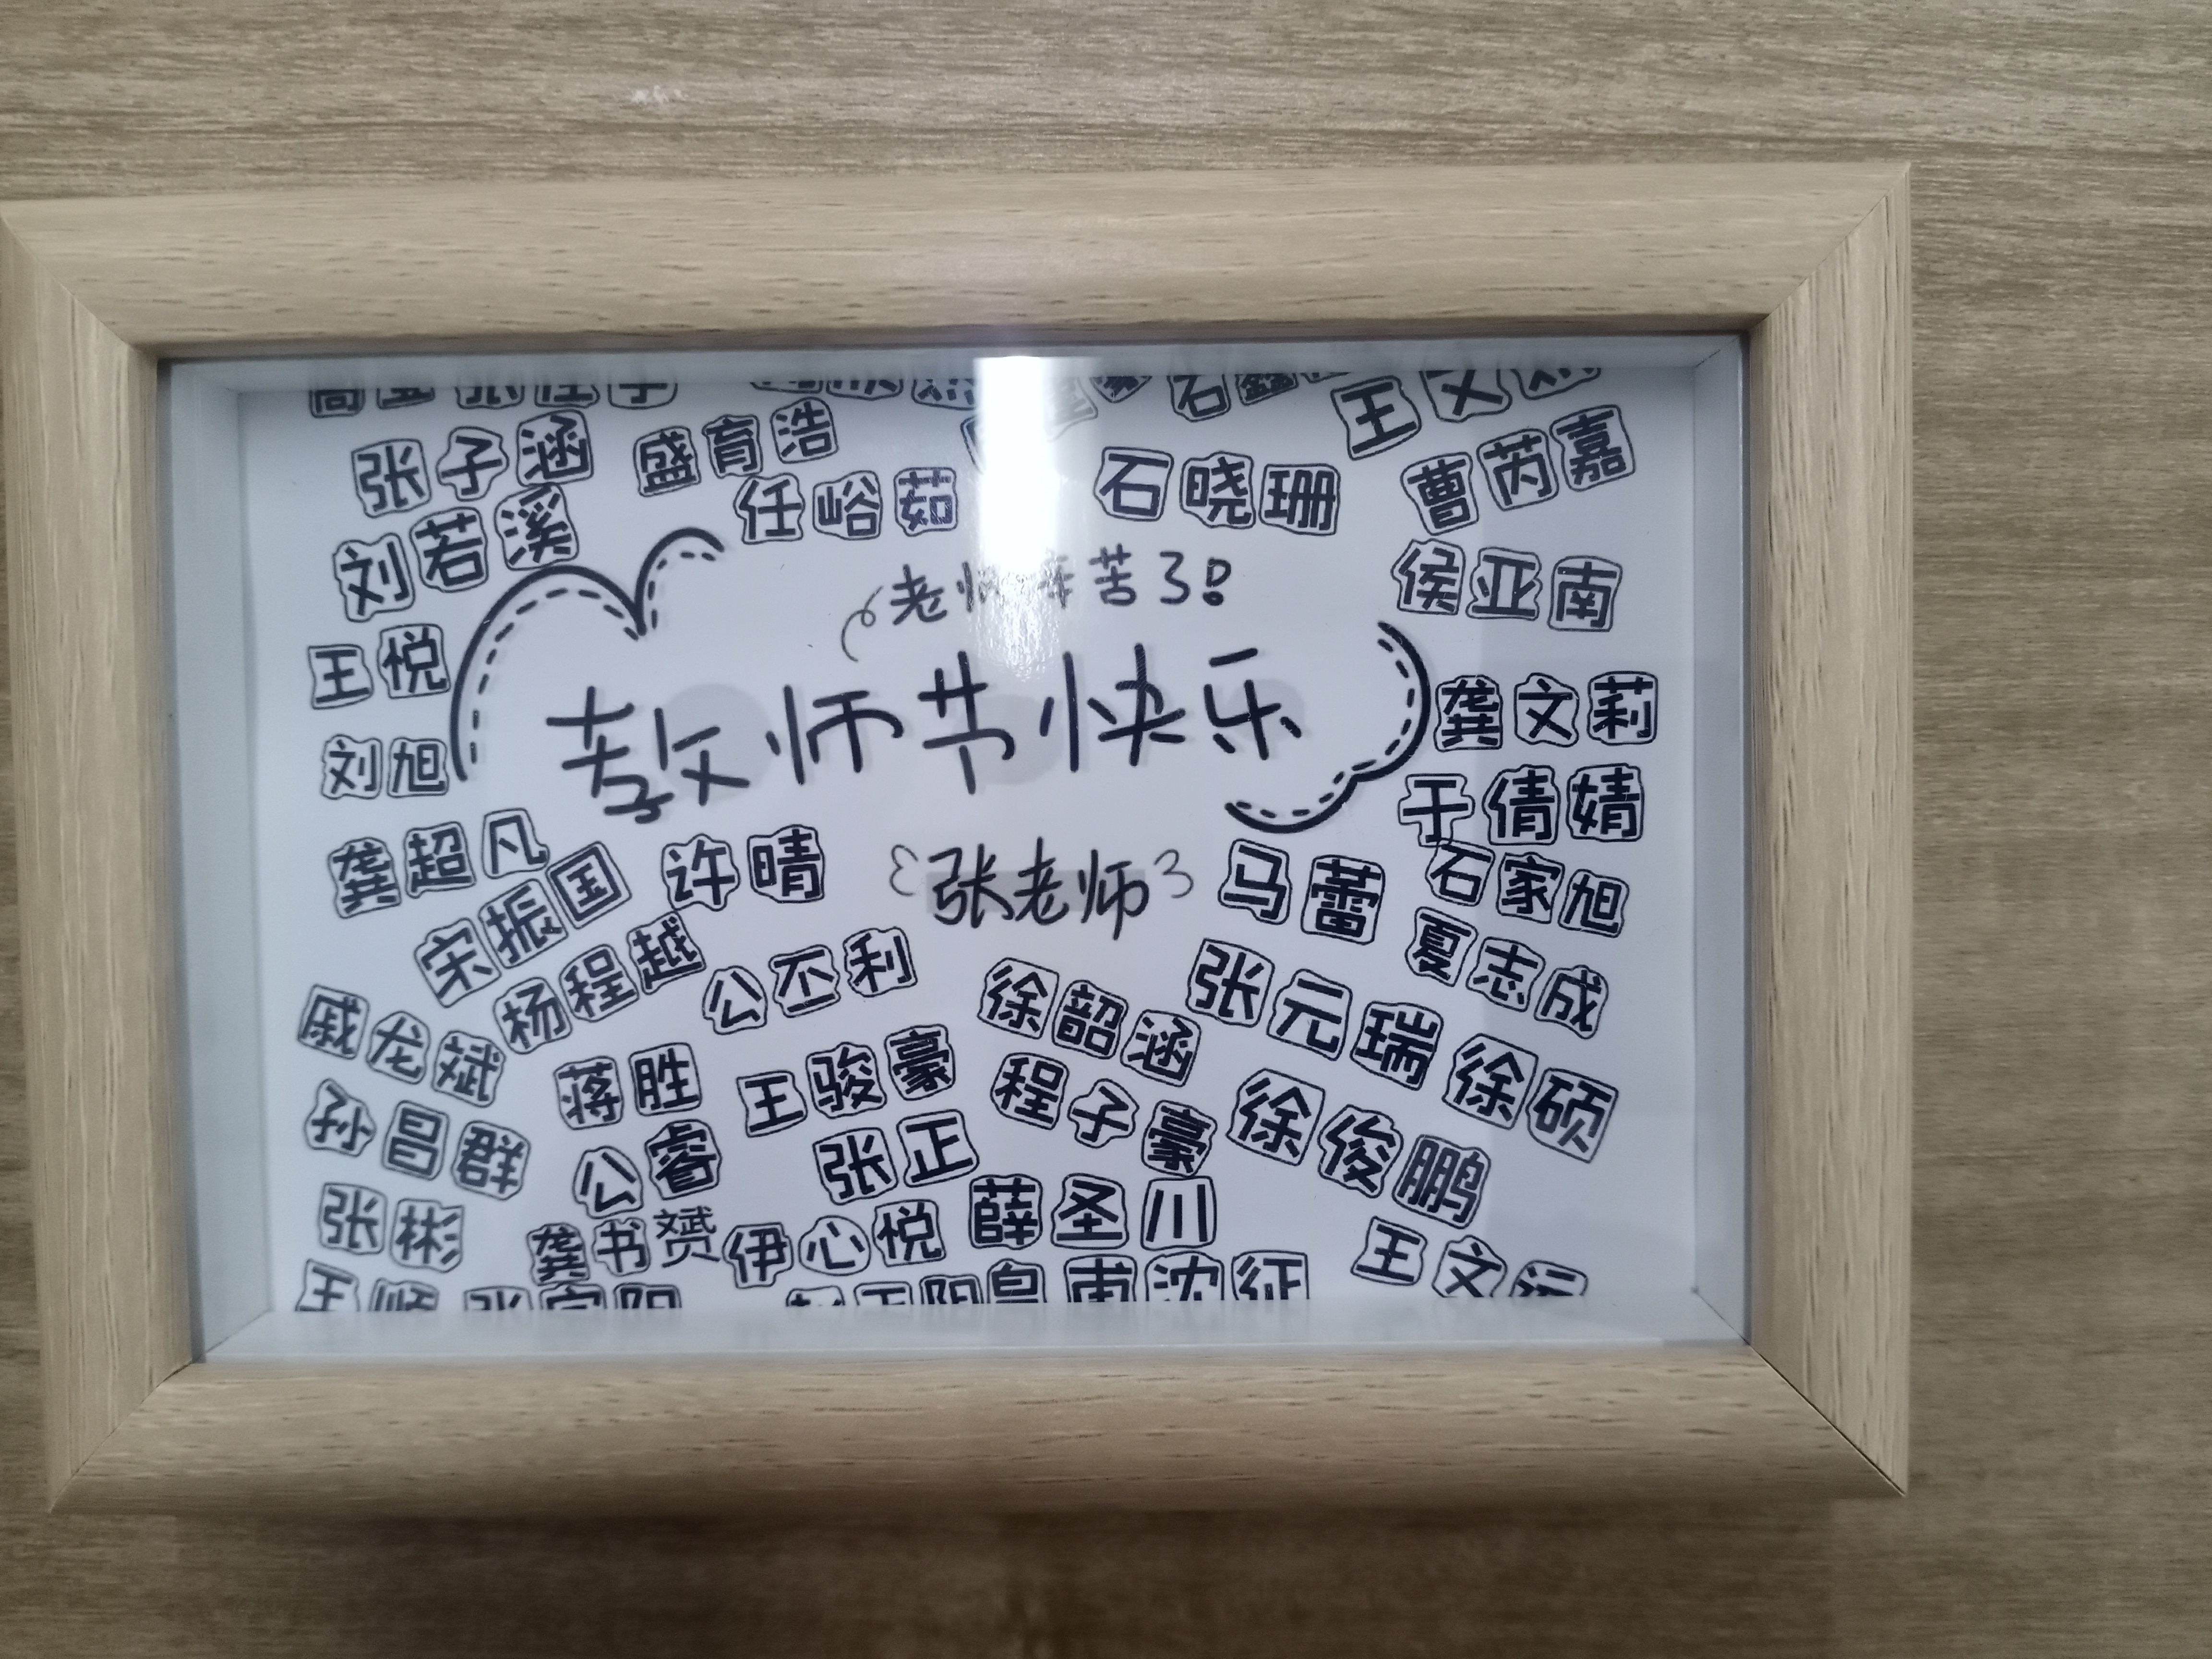 张子涵
盛育浩
任峪茹
石晓珊
曹芮嘉
刘若溪
侯亚南
老师辛苦了!
王悦
教师节快乐
龚文莉
刘旭
于倩婧
龚超凡
宋振国
许晴
张老师
马蕾
石家旭
夏志成
杨程越
公丕利
徐韶涵
张元瑞
徐硕
戚龙斌
蒋胜
王骏豪
程子豪
徐俊鹏
孙昌群
公睿
张正
薛圣川
张彬
龚书赟
伊心悦
王文